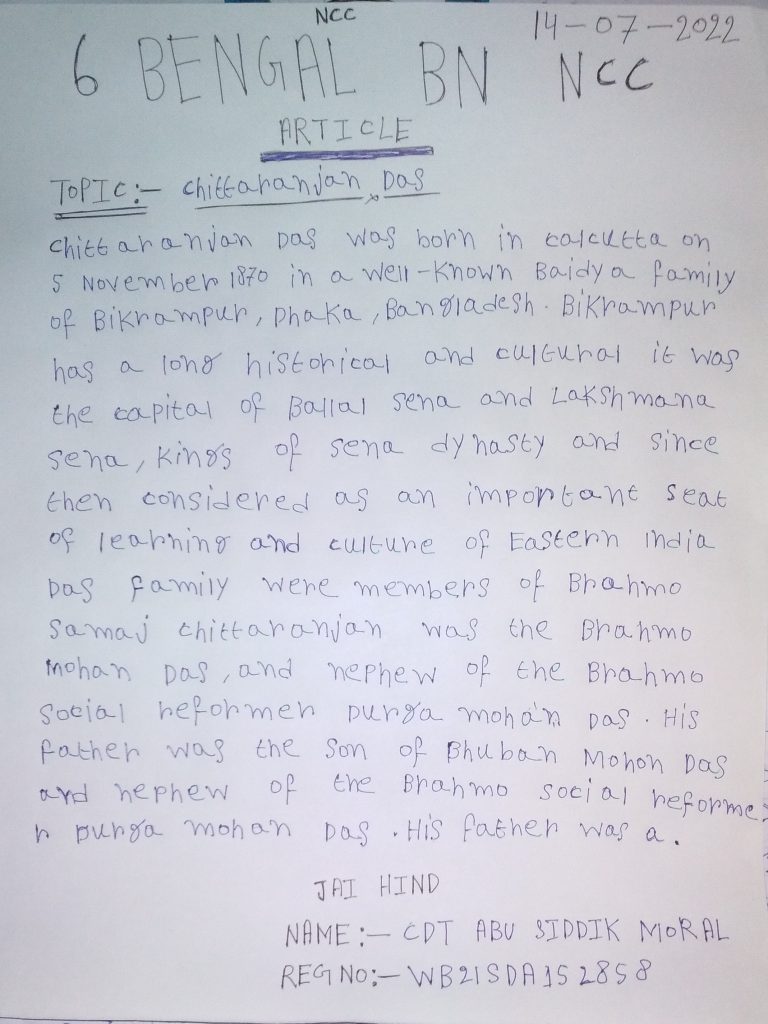 NCC
14-07-2022
6 BENGAL BN NCC
ARTICLE
TOPIC:- Chittaranjan Das
Chittaranjan Das was born in calcutta on
5 November 1870 in a well-known Baidya family
of Bikrampur, Dhaka, Bangladesh. Bikrampur
has a long historical and cultural it was
the capital of Ballal Sena and Lakshmana
Sena, Kings of Sena dynasty and since
then considered as an important seat
of learning and culture of Eastern India
Das family were members of Brahmo
Samaj Chittaranjan was the Brahmo
Mohan Das, and nephew of the Brahmo
Social reformer Durga Mohan Das. His
father was the Son of Bhuban Mohon Das
and nephew of the Brahmo social reforme
r Durga Mohan Das. His father was a.
JAI HIND
NAME:- CDT ABU SIDDIK MORAL
REG NO:- WB21SDA152858